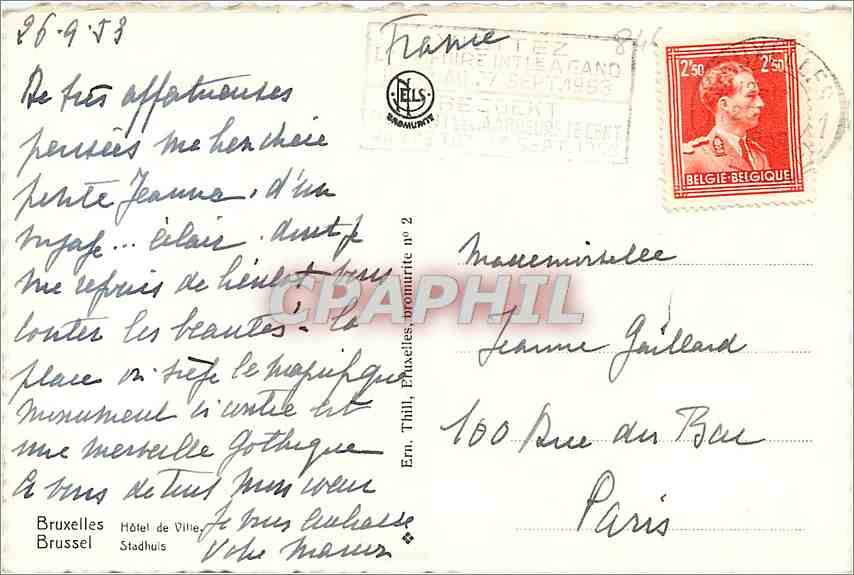 26.9.53
France
VISITEZ
FOIRE INT. LE A GAND
AU 27 SEPT. 1953
BEZOEKT
NELS
BROMURITE
2'50 2'50
BELGIE-BELGIQUE
De très affectueuses
pensées ma bien chère
petite Jeanne. d'un
voyage... éclair. dont je
me réjouis de bientôt vous
conter les beautés. la
place où siège le magnifique
monument ci contre est
une merveille Gothique
A vous de tout mon cœur
Je vous embrasse
Votre
Mademoiselle
Jeanne Gaillard
100 Rue du Bac
Paris
Ern. Thill, Bruxelles, bromurite nº 2
CPAPHIL
Bruxelles Hôtel de Ville,
Brussel Stadhuis